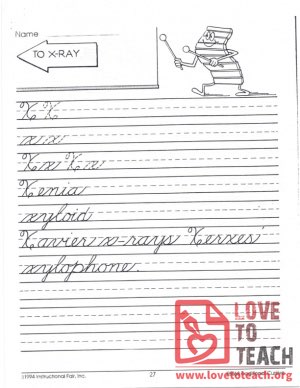 Name
TO X-RAY
X X
x x
Xx Xx
Xenia
xyloid
Xavier x-rays Xerxes'
xylophone.
LOVE
TO
TEACH
www.lovetoteach.org
©1994 Instructional Fair, Inc.
27